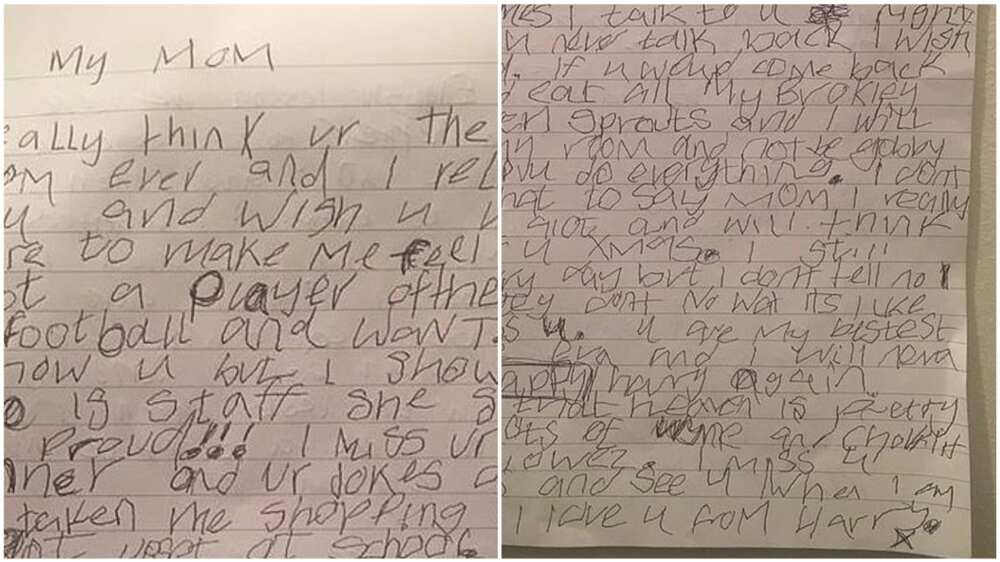 My MOM
eally think ur the
OM ever and I rel
u and wish u w
re to make me feel
ot a player ofthe
football and wANT
how u but I show
IS STAFF she s
Proud!!! I Miss ur
nner and ur Jokes
taken me shopping
upset at school.
mes I talk to u right
u never talk back I wish
. If u woud come back
eat all My Brokley
erl sprouts and I will
room and not be gobby
do everything. I dont
hat to say MOM I really
alot and will think
u XMAS. I still
ry day but I dont tell no 1
they dont no wat its like
u. u are My bestest
eva and I will neva
happy harry again
that heaven is pretty
ots of wine and choklit
lowez. I Miss u
and see u when I am
I love u from Harry.